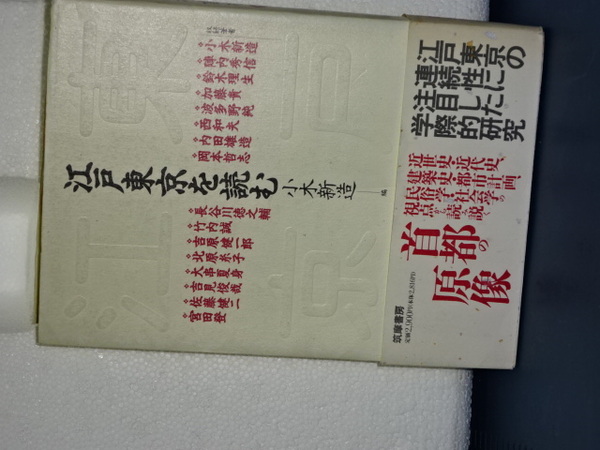 小木新造
陣内秀信
鈴木理生
加藤貴
波多野純
西和夫
内田雄造
岡本哲志
江戸東京を読む
小木新造 編
長谷川徳之輔
竹内誠
吉原健一郎
北原糸子
大串夏身
吉見俊哉
佐藤健二
宮田登
江戸東京の
連続性に
注目した
学際的研究
近世史・近代史、
建築史・都市計画、
民俗学・社会学の
視点から読み説く
首都の
原像
筑摩書房
定価2,900円(本体2,816円)
江戸東京